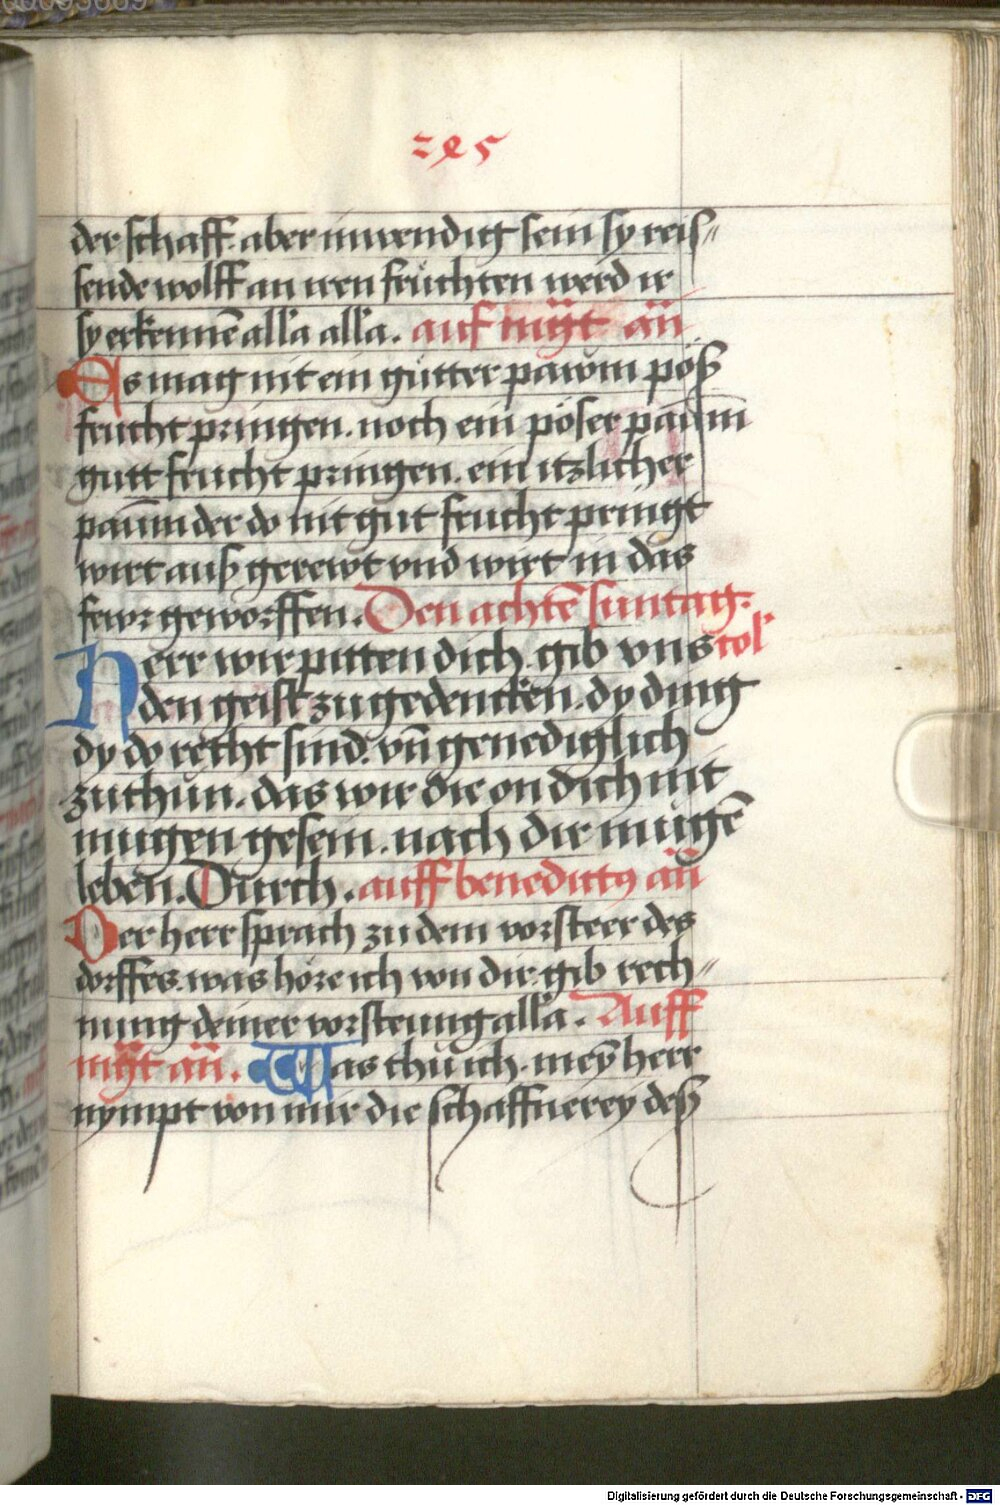 285
der schaff. aber inwendig sein sy reis〃
sende wolff an iren früchten werd ir
sy erkennē alla alla. auf mg̃t añ
Es mag nit ein gütter pawm pöß
frucht pringen. noch ein pöser paūm
gutt frucht pringen. ein itzlicher
paūm der do nit gut frucht pringt
wirt auß gerewt vnd wirt in das
fewr geworffen. Den achtē suntag.
Herr wir pitten dich. gib vns col̛
den geist zu gedencken. dy ding
dy do recht sind. vñ genediglich
zuthun. das wir die on dich nit
mugen gesein. nach dir mügē
leben. Durch. auff benedictꝯ añ
Der herr sprach zu dem vorsteer des
dorffes. was höre ich von dir. gib rech〃
nung deiner vorsteung alla. Auff
mg̃t añ. Was thü ich. mey̅ herr
nympt von mir die schaffnerey deß
Digitalisierung gefördert durch die Deutsche Forschungsgemeinschaft - DFG